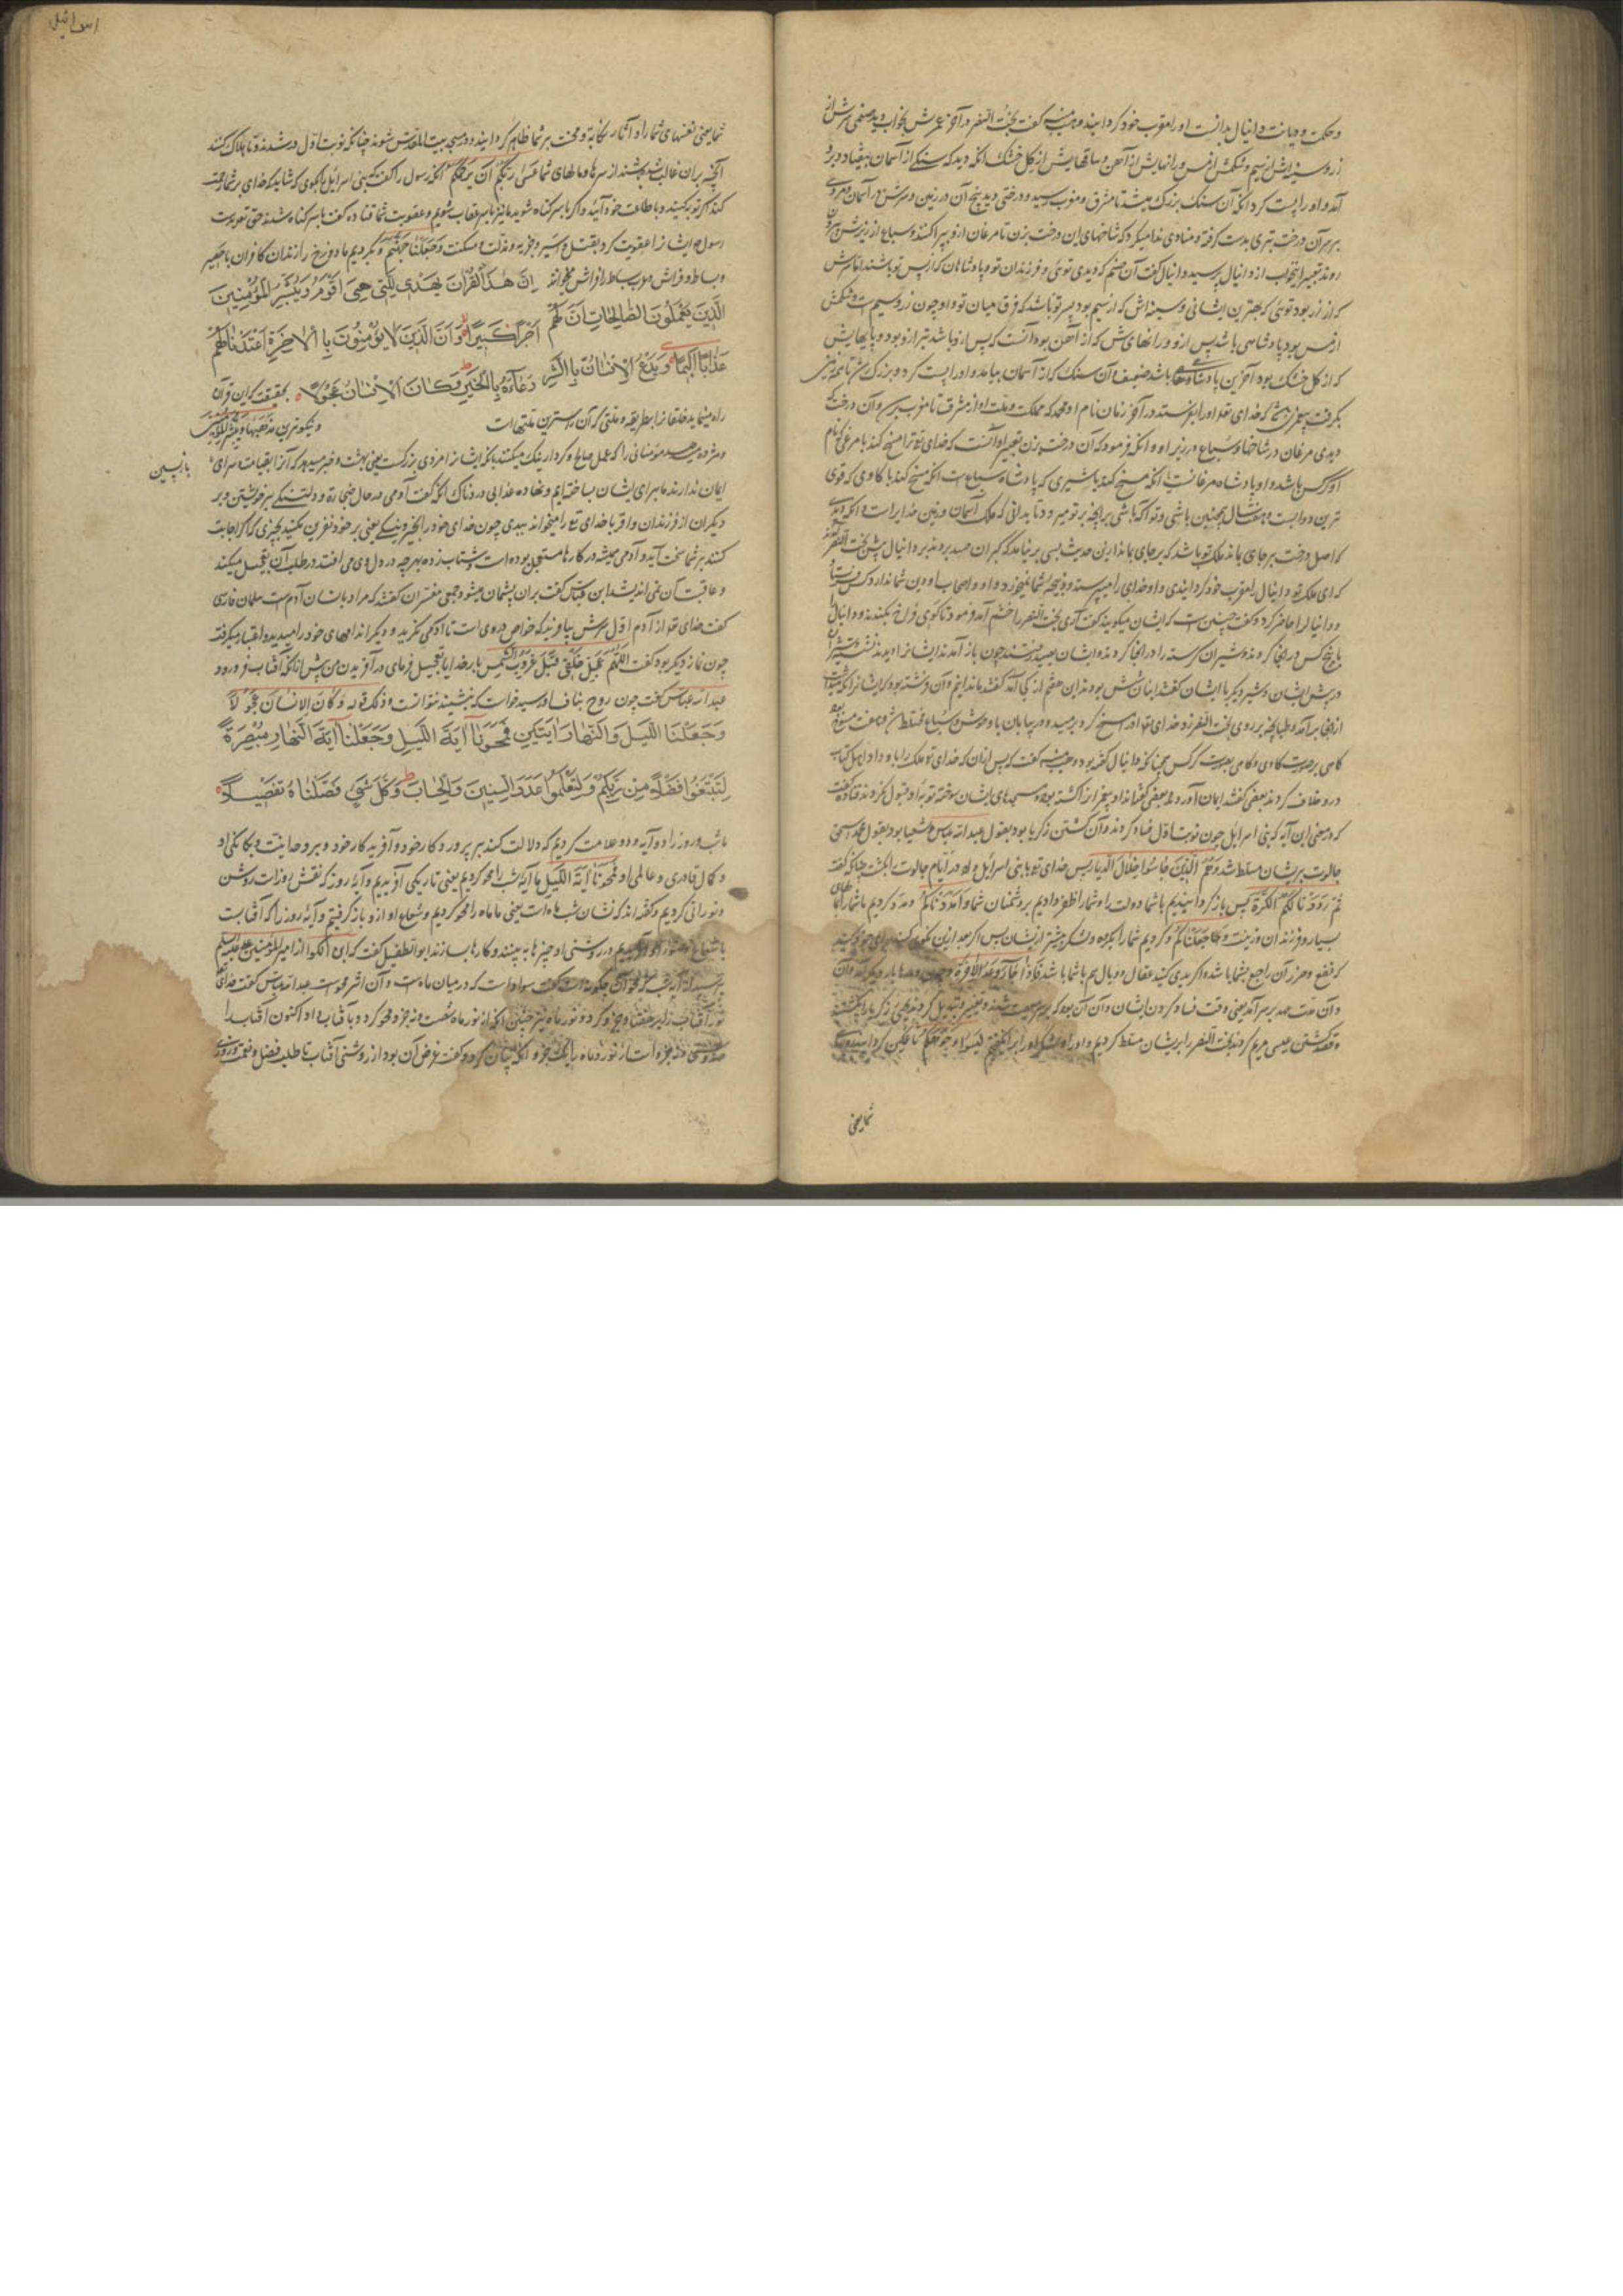 و حکمت و دیانت دانیال بدانست او را مقرب خود کردانید وهب منبه کفت بخت النصر در آخر عمرش بخواب دید صنمی سرش از
زر و سینه اش از سیم و شکمش از مس و رانهایش از آهن و ساقهایش از کل خشک انکه دید که سنکی از آسمان بیفتاد و برو
آمد و او را پست کرد انکه آن سنک بزرک میشد تا مشرق و مغرب رسید و درختی دید بیخ آن در زمین و سرش در آسمان و مردی
بر سر آن درخت تبری بدست کرفته و منادی ندا میکرد که شاخهای این درخت بزن تا مرغان ازو بپراکنند و سباع از زیرش بیرون
روند تعبیر این خواب از دانیال پرسید دانیال کفت آن صنم که دیدی توئی و فرزندان تو و پادشاهان که از پس تو باشند اما سرش
که از زر بود توئی که بهترین ایشانی و سینه اش که از سیم بود پسر تو باشد که فرق میان تو و او چون زر و سیم است و شکمش
از مس بود پادشاهی باشد پس ازو و رانهای ش که از آهن بود آنست که پس ازو باشد تیرازو بود و پایهایش
که از کل خشک بود آخرین پادشاهی باشد ضعیف و آن سنک که از آسمان بیامد و او را پست کرد و بزرک شد تا همه زمین
بکرفت پیغمبری که خدای تعالی او را بفرستد در آخر زمان نام او محمد که مملکت و ملت او از مشرق تا مغرب برسد و آن درخت
دیدی مرغان در شاخها و سباع در زیر او و انکه فرمود که آن درخت بزن تعبیر او آنست که خدای تع ترا مسخ کند با مرغی که نام
او کرکس باشد و او پادشاه مرغانست انکه مسخ کند با شیری که پادشاه سباع است انکه مسخ کند با کاوی که قوی
ترین دوابست و هفت سال همچنین باشی و تو آکه باشی بر انچه بر تو میرود تا بدانی که ملک آسمان و زمین خدایراست و انکه دیدی
که اصل درخت بر جای بماند ملک تو باشد که بر جای بماند ازین حدیث بسی بر نیامد که کبران حسد بردند بر دانیال پیش بخت النصر
که ای ملک تو دانیال را مقرب خود کردانیدی و او خدای را میپرستد و ذبیحه شما نمیخورد و او و اصحاب او دین شما ندارد کس فرستاد
و دانیال را حاضر کرد و کفت چنین است که ایشان میکویند کفت آری بخت النصر را خشم آمد فرمود تا کوی فراخ بکندند و دانیال را
با پنج کس در انجا کردند و شیران کرسنه را در انجا کردند و ایشان بعید رفتند چون باز آمدند ایشانرا دیدند نشسته و شیران
در پیش ایشان و مردی دیکر با ایشان کفتند اینان شش بودند این هفتم از کجا آمد کفتند ما ندانیم و آن فرشته بود که ایشانرا نکه میداشت
از انجا بر آمد و طپانچه بر روی بخت النصر زد خدای تعالی او را مسخ کرد و برمید و در بیابان با وحوش و سباع مختلط شد
کاهی بر صورت کاوی و کاهی بصورت کرکس چنانکه دانیال کفته بود وهب منبه کفت که پس ازان که خدای تع ملک را با او داد اهل کتاب
درو خلاف کردند بعضی کفتند ایمان آورد و بعضی کفتند او پیغمبرانرا کشته بود و مسجدهای ایشان سوخته توبه او قبول نکردند قتاده کفت
که در معنی این آیه که بنی اسرایل چون نوبت اول فساد کردند و آن کشتن زکریا بود بقول عبدالله عباس و شعیا بود بقول محمد اسحق
جالوت بر ایشان مسلط شد و هم الذین جاسوا خلال الدیار پس خدای تع با بنی اسرائیل داد در ایام جالوت را بکشت چنانکه کفت
ثم رددنا لکم الکرة پس باز کردانیدیم با شما دولت را و شما را ظفر دادیم بر دشمنان شما و امددناکم و مدد کردیم با شما با مالهای
بسیار و فرزندان و زینت و جعلناکم و کردیم شما را بکروه و لشکر بیشتر از ایشان پس اکر بعد ازین نکوئی کنید برای خود کنید
که نفع و ضرر آن راجع بشما باشد و اکر بدی کنید عقاب و وبال هم با شما باشد فاذا جاء وعد الآخرة و چون وعده بار دیکر آمد و آن
و آن مدت عهد بر سر آمد یعنی وقت فساد کردن ایشان و آن آن بود که بر سر معصیت شدند و تغییر و تبدیل کردند یحیی زکریا را بکشتند
و قصد کشتن عیسی مریم کردند بخت النصر را بر ایشان مسلط کردیم و او را و لشکر او را بر انکیختیم لیسوؤا وجوهکم تا غمکین کردانند رویهای
شما یعنی
اسرائیل
شما یعنی نفسهای شما را و آثار نکایة و محنت بر شما ظاهر کردانیدند و در مسجد بیت المقدس شوند چنانکه نوبت اول در شدند و تا هلاک کنند
آنچه بران غالب شده باشند از سرها و مالهای شما عسی ربکم ان یرحمکم انکه رسول را کفت که بنی اسرائیل را بکوی که شاید که خدای بر شما رحمت
کند اکر توبه کنید و با طاعت خود آیید و اکر با سر کناه شوید ما نیز با سر عقاب شویم و عقوبت شما قتاده کفت با سر کناه شدند حق تع بدست
رسول ص ایشانرا عقوبت کرد بقتل و سیر و جزیه و مذلت و مسکنت و جعلنا جهنم و بکردیم ما دوزخ را زندان کافران یا حصیر
و بساط و فراش عرب بساط را فراش خوانند ان هذا القران یهدی للتی هی اقوم و یبشر المؤمنین
الذین یعملون الصالحات ان لهم اجرا کبیرا و ان الذین لا یؤمنون بالاخرة اعتدنا لهم
عذابا الیما و یدع الانسان بالشر دعآءه بالخیر و کان الانسان عجولا بحقیقت که این قرآن
راه مینماید خلقانرا بطریقه و ملتی که آن راسترین ملتهاست و نیکوترین مذهبها و یبشر المؤمنین
و مژده میدهد مؤمنانی را که عمل صالح و کردار نیک میکنند بانکه ایشانرا مزدی بزرکست یعنی بهشت و خبر میدهد که آنان که بقیامت سرای
بازپسین
ایمان ندارند ما برای ایشان ساخته ایم و نهاده عذابی دردناک انکه کفت آدمی در حال ضجارة و دلتنکی بر خویشتن و بر
دیکران از فرزندان و اقربا خدای تع را میخواند ببدی چون خدای خود را بخیر و نیکی یعنی بر خود نفرین میکنید بچیزی که اکر اجابت
کنند بر شما سخت آید و آدمی همیشه در کارها مستعجل بوده است و شتاب زده بهرچه در دل وی می افتد در طلب آن تعجیل میکند
و عاقبت آن نمی اندیشد ابن عباس کفت بران پشیمان میشود و جمعی مفسران کفتند که مراد بانسان آدم است سلمان فارسی
کفت خدای تعالی از آدم اول سرش بیافرید که خواص در وی است تا او می نکرید و دیکر اندامهای خود را میدید و اعتبار میکرفت
چون نماز دیکر بود کفت اللهم عجل خلقی قبل غروب الشمس بار خدایا تعجیل فرمای در آفریدن من پیش از انکه آفتاب فرو رود
عبدالله عباس کفت چون روح بناف او رسید خواست که بنشیند نتوانست و ذلک قوله و کان الانسان عجولا
و جعلنا اللیل و النهار ایتین فمحونا ایة اللیل و جعلنا ایة النهار مبصرة
لتبتغوا فضلا من ربکم و لتعلموا عدد السنین و الحساب و کل شیء فصلناه تفصیلا
ما شب و روز را دو آیه و دو علامت کردیم که دلالت کنند بر پروردکار خود و آفریدکار خود و بر وحدانیت و یکانکی او
و کمال قادری و عالمی او فمحونا ایة اللیل ما آیه شب را محو کردیم یعنی تاریکی آفریدیم و آیه روز که نقش روز است روشن
و نورانی کردیم و کفته اند که نشان شب ماه است یعنی ما ماه را محو کردیم و شعاع او ازو باز کرفتیم و آیه روز را که آفتابست
با شعاع و نور او آفریدیم در روشنی او چیزها به بینند و کارها بسازند ابو الطفیل کفت که ابن الکوا از امیر المؤمنین علیه السلم
پرسید که آیه شب و محو آن چکونه است کفت سواد است که در میان ماه است و آن اثر محو است عبدالله عباس کفت خدای
نور آفتاب را بر هفتاد جزو کرد و نور ماه نیز چنین انکه از نور ماه شصت و نه جزو محو کرد و با آفتاب داد اکنون آفتاب را
صد و سی و نه جزو است از نور و ماه را یک جزو انکه بیان کرد و کفت غرض آن بود از روشنی آفتاب تا طلب فضل و نعمت و روزی